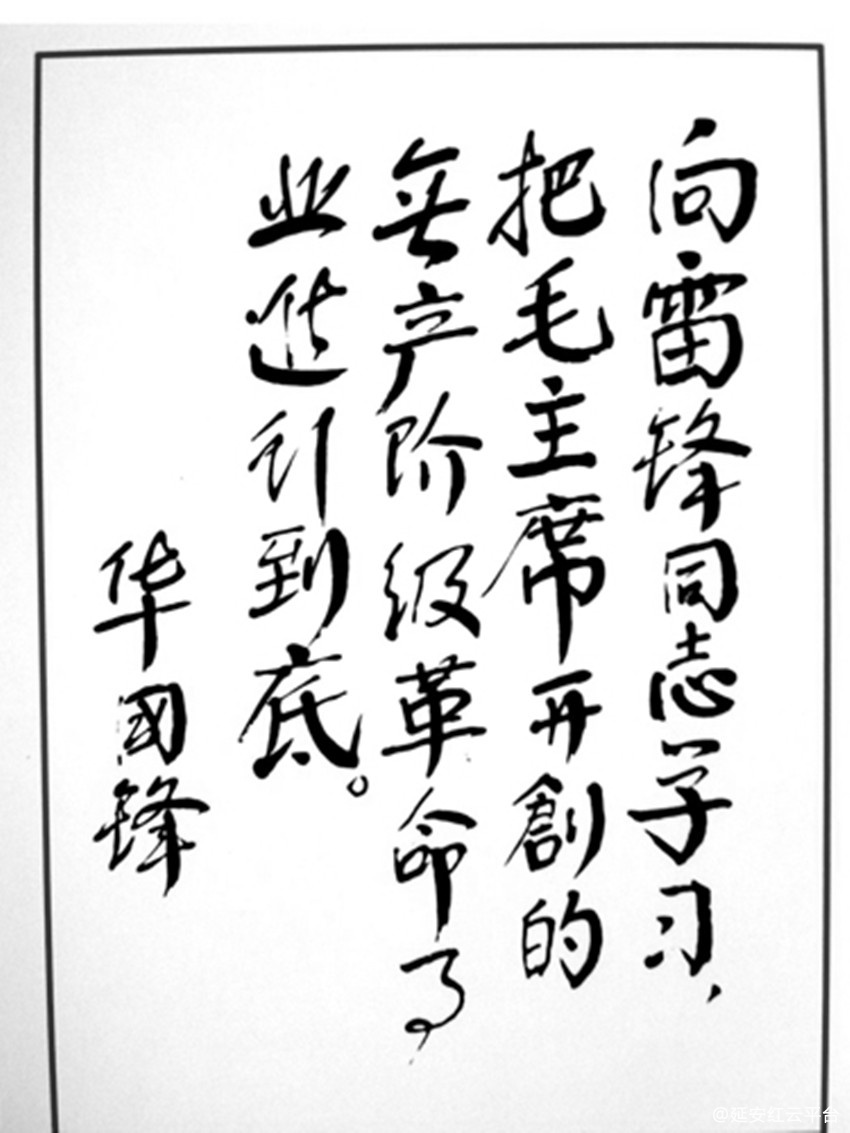 向雷锋同志学习，
把毛主席开創的
無产阶级革命事
业進行到底。
华國锋
@延安紅云平台